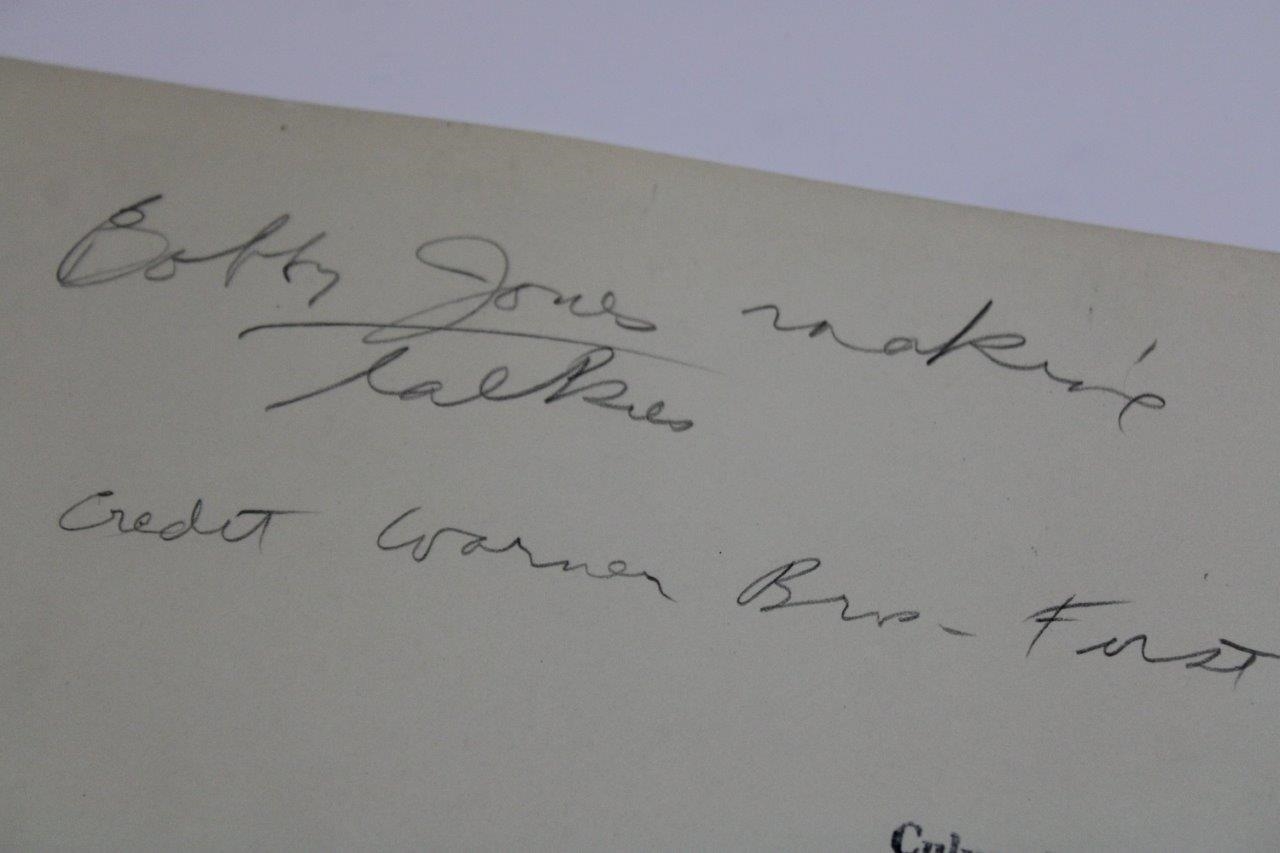 Bobby Jones making
talkies
Credit Warner Bros - First